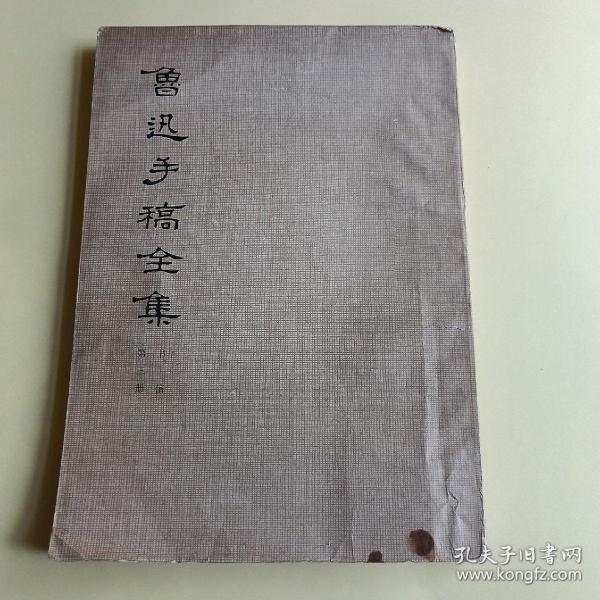 魯迅手稿全集
书信
第
册
孔夫子旧書网
www.kongfz.com